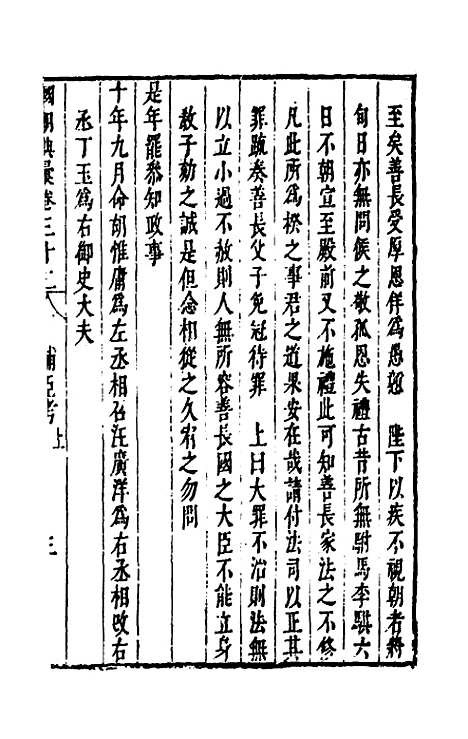 至矣善長受厚恩佯爲愚恕　陛下以疾不視朝者將
旬日亦無問候之敬孤恩失禮古昔所無駙馬李騏六
日不朝宣至殿前又不施禮此可知善長家法之不修
凡此所爲揆之事君之道果安在哉請付法司以正其
罪疏奏善長父子免冠待罪　上曰大罪不治則法無
以立小過不赦則人無所容善長國之大臣不能立身
教子劾之誠是但念相從之久宥之勿問
是年罷參知政事
十年九月命胡惟庸爲左丞相召汪廣洋爲右丞相改右
丞丁玉爲右御史大夫
國朝典彙卷三十二　輔臣考上　三